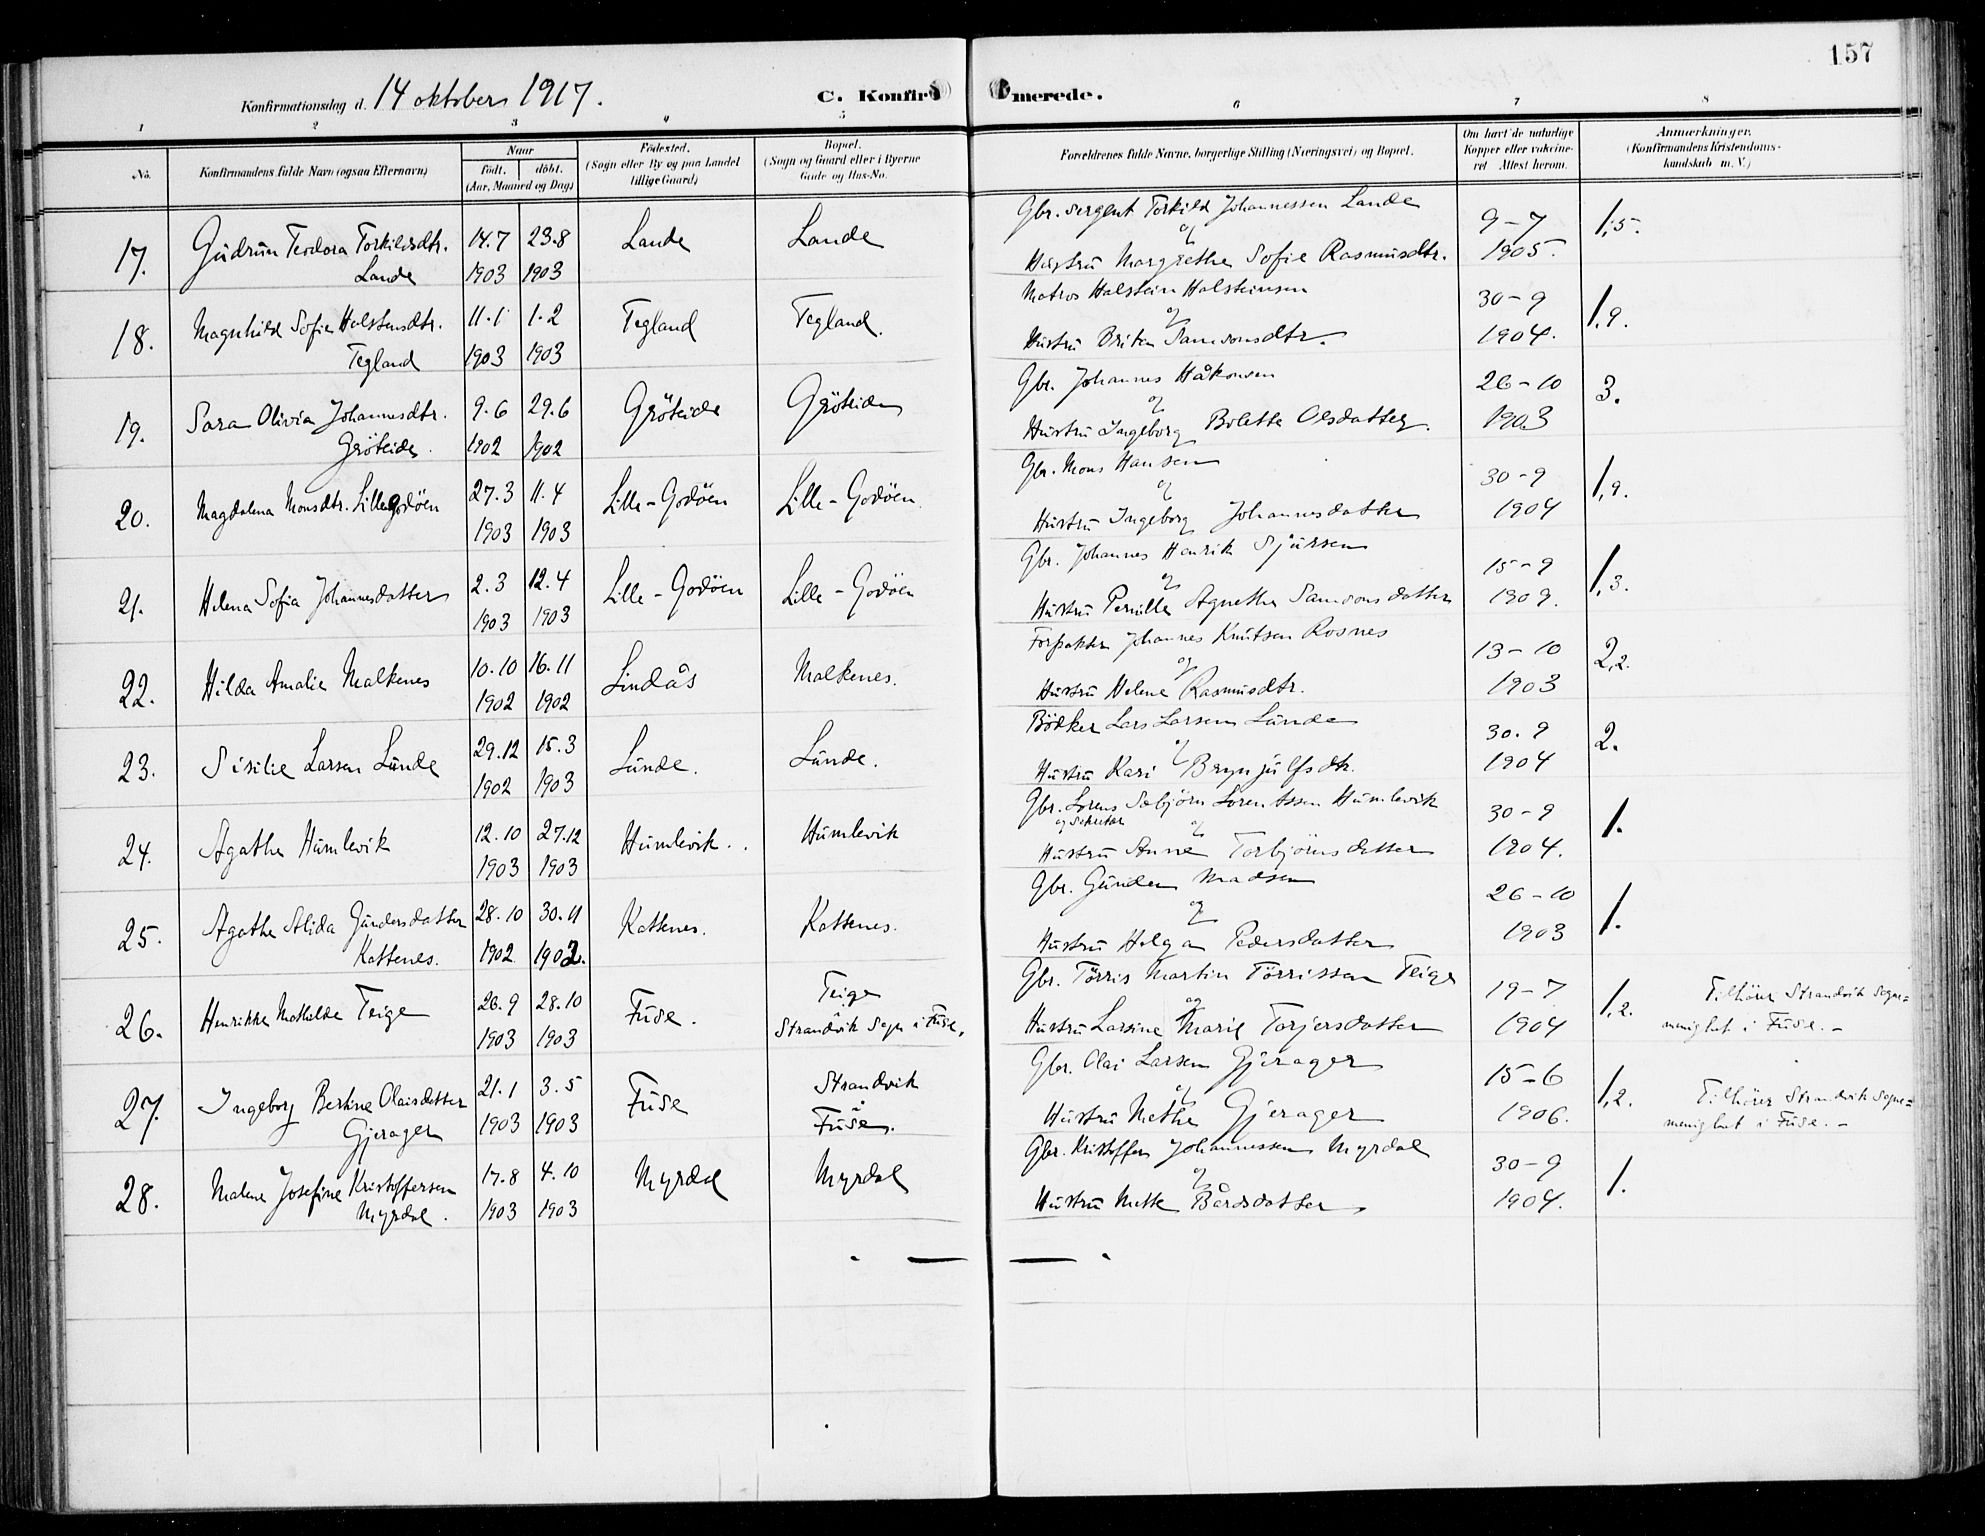 157
Konfirmationsdag d. 14 oktober 1917.
C. Konfirmerede.
1 2 3 4 5 6 7 8
No.
Konfirmandens fulde Navn (ogsaa Efternavn)
Naar
födt. döbt.
(Aar, Maaned og Dag)
Födested.
(Sogn eller By og paa Landet
tillige Gaard)
Bopæl.
(Sogn og Gaard eller i Byerne
Gade og Hus-No.
Forældrenes fulde Navne, borgerlige Stilling (Næringsvei) og Bopæl.
Om havt de naturlige
Kopper eller vaccine-
ret Attest herom.
Anmærkninger.
(Konfirmandens Kristendoms-
kundskab m. V.)
17. Gudrun Teodora Torkildsdtr. 14.7 23.8 Lande Lande Gbr. Sergent Torkild Johannessen Lande 9-7 1,5.
Lande 1903 1903 og Hustru Margrethe Sofie Rasmusdtr. 1905.
18. Magnhild Sofie Halstensdtr. 11.1 1.2 Tegland Tegland. Matros Halstein Halsteinsen 30-9 1,9.
Tegland 1903 1903 og Hustru Briten Samsonsdtr. 1904.
19. Sara Olivia Johannesdtr. 9.6 29.6 Gröteide Gröteide Gbr. Johannes Håkonsen 26-10 3.
Gröteide. 1902 1902 og Hustru Ingeborg Bolette Olsdatter. 1903
20. Magdalena Monsdtr. Lillegodöen 27.3 11.4 Lille-Godöen Lille-Godöen. Gbr. Mons Hansen 30-9 1,9.
1903 1903 og Hustru Ingeborg Johannesdatter 1904
21. Helena Sofia Johannesdatter 2.3 12.4 Lille-Godöen Lille-Godöen Gbr. Johannes Henrik Sjursen 15-9 1,3.
1903 1903 og Hustru Pernille Agnethe Samsonsdatter 1909.
22. Hilda Amalie Malkenes 10.10 16.11 Lindås Malkenes. Forpakter Johannes Knutsen Rosnes 13-10 2,2.
1902 1902 og Hustru Helene Rasmusdtr. 1903
23. Sisilie Larsen Lunde 29.12 15.3 Lunde. Lunde. Bödker Lars Larsen Lunde 30.9 2.
1902 1903 og Hustru Kari Brynjulfsdtr. 1904
24. Agathe Humlevik 12.10 27.12 Humlevik. Humlevik Gbr. Lorens Sebjörn Lorentssen Humlevik 30-9 1.
1903 1903 og Hustru Anne Torbjörnsdatter 1904.
25. Agathe Alida Gundersdatter 28.10 30.11 Kattenes. Kattenes. Gbr. Gunder Madsen 26-10 1.
Kattenes. 1902 1902. og Hustru Helga Pedersdatter 1903
26. Henrikke Mathilde Teige 26.9 28.10 Fuse. Teige Gbr. Törris Martin Törrissen Teige 19-7 1,2. Tilhörer Strandvik sogne-
1903 1903 Strandvik Sogn i Fuse. og Hustru Larsine Marie Torjersdatter 1904 menighet i Fuse.-
27. Ingeborg Bertine Olaisdatter 21.1 3.5 Fuse Strandvik Gbr. Olai Larsen Gjerager 15-6 1,2. Tilhörer Strandvik sogne-
Gjerager 1903 1903 i Fuse. og Hustru Methe Gjerager 1906. menighet i Fuse.-
28. Malene Josefine Kristoffersen 17.8 4.10 Myrdal Myrdal Gbr. Kristoffer Johannessen Myrdal 30-9 1.
Myrdal. 1903 1903 og Hustru Mette Bårdsdatter 1904.